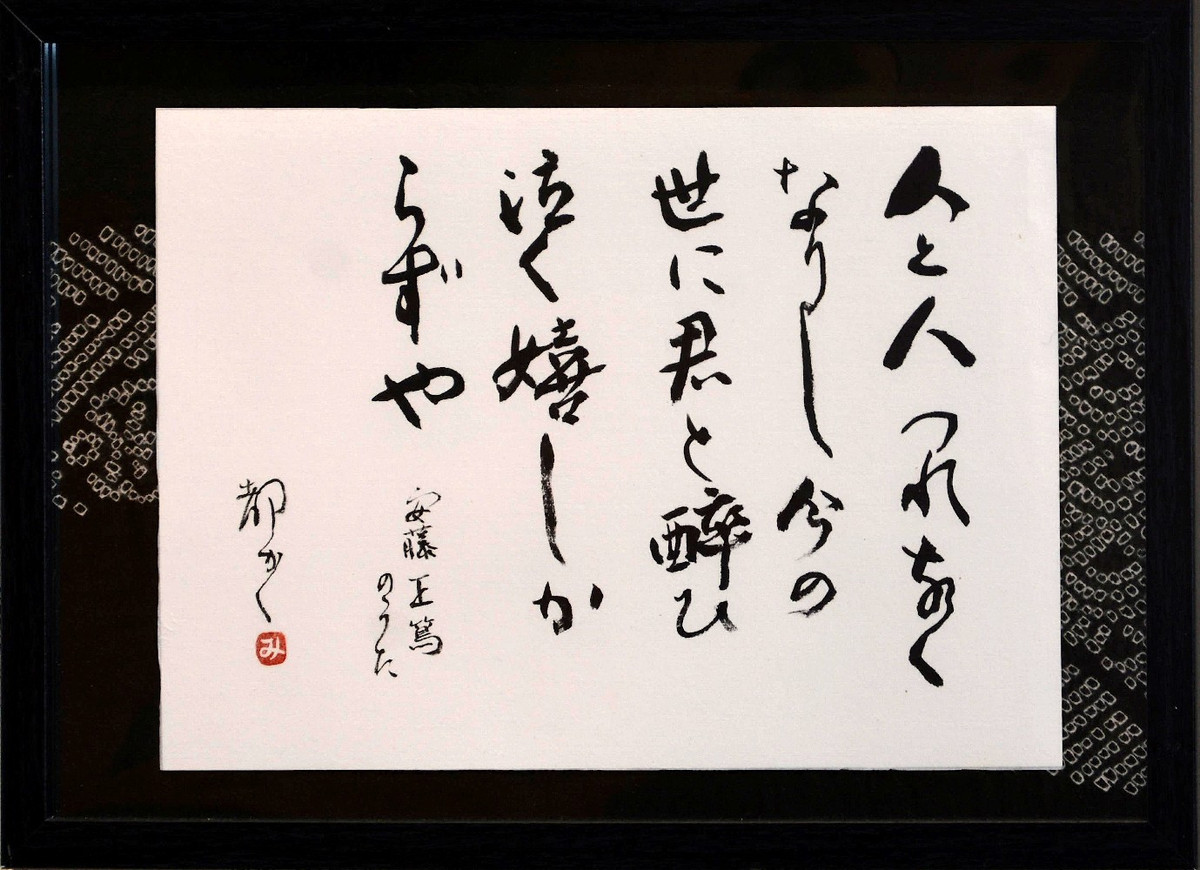 人と人つれなく
なりし今の
世に君と醉ひ
泣く嬉しか
らずや
安藤正篤
のうた
都かく
み